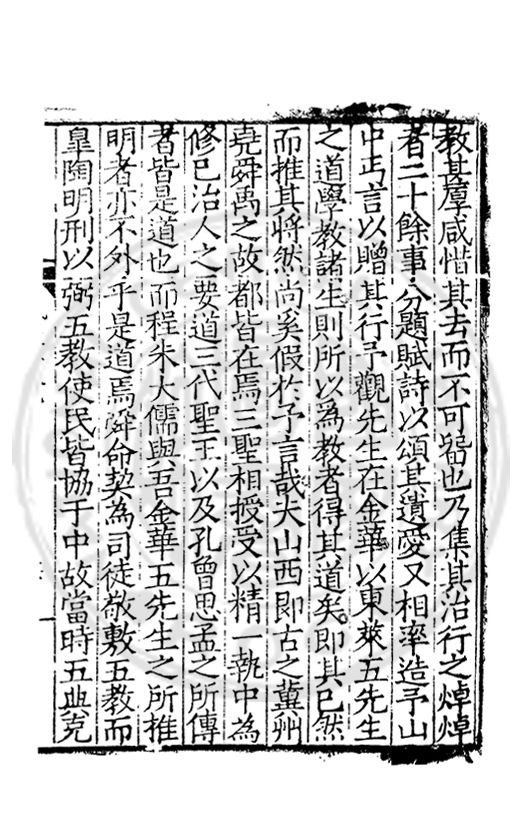 教甚厚咸惜其去而不可留也乃集其治行之焯焯
者二十餘事分題賦詩以頌其遺愛又相率造予山
中丐言以贈其行予觀先生在金華以東萊五先生
之道學教諸生則所以為教者得其道矣即其已然
而推其將然尚奚假於予言哉夫山西即古之冀州
堯舜禹之故都皆在焉三聖相授受以精一執中為
修已治人之要道三代聖王以及孔曾思孟之所傳
者皆是道也而程朱大儒與吾金華五先生之所推
明者亦不外乎是道焉舜命契為司徒敬敷五教而
臯陶明刑以弼五教使民皆協于中故當時五典克